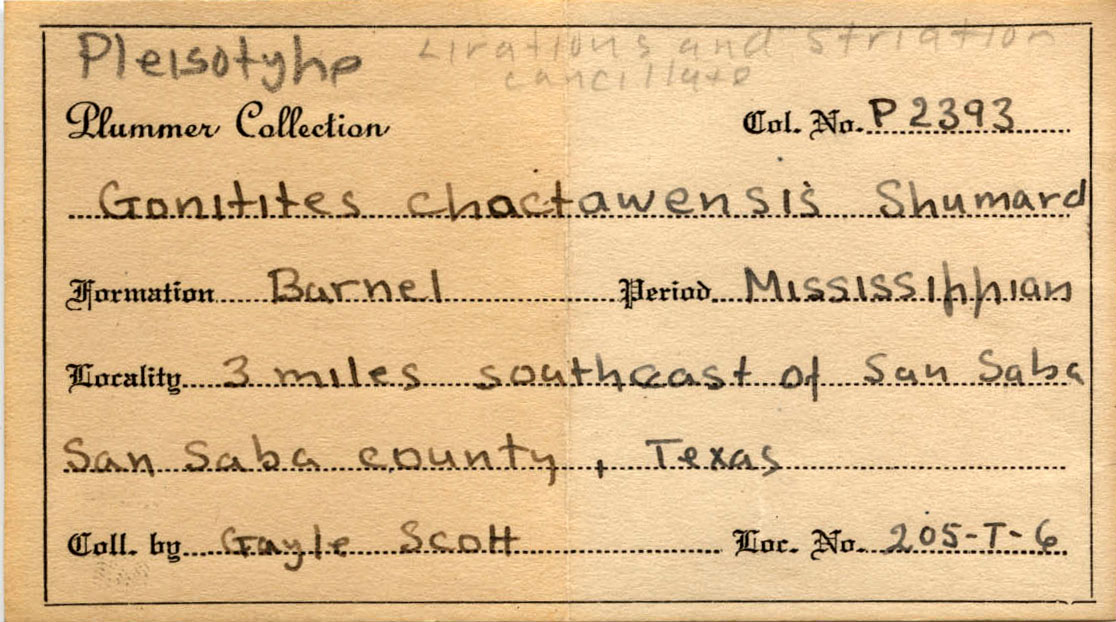 Pleisotyhe lirations and striation
cancillate
Plummer Collection Col. No. P 2393
Gonitites choctawensis Shumard
Formation Barnel Period Mississippian
Locality 3 miles southeast of San Saba
San Saba county, Texas
Coll. by Gayle Scott Loc. No. 205-T-6